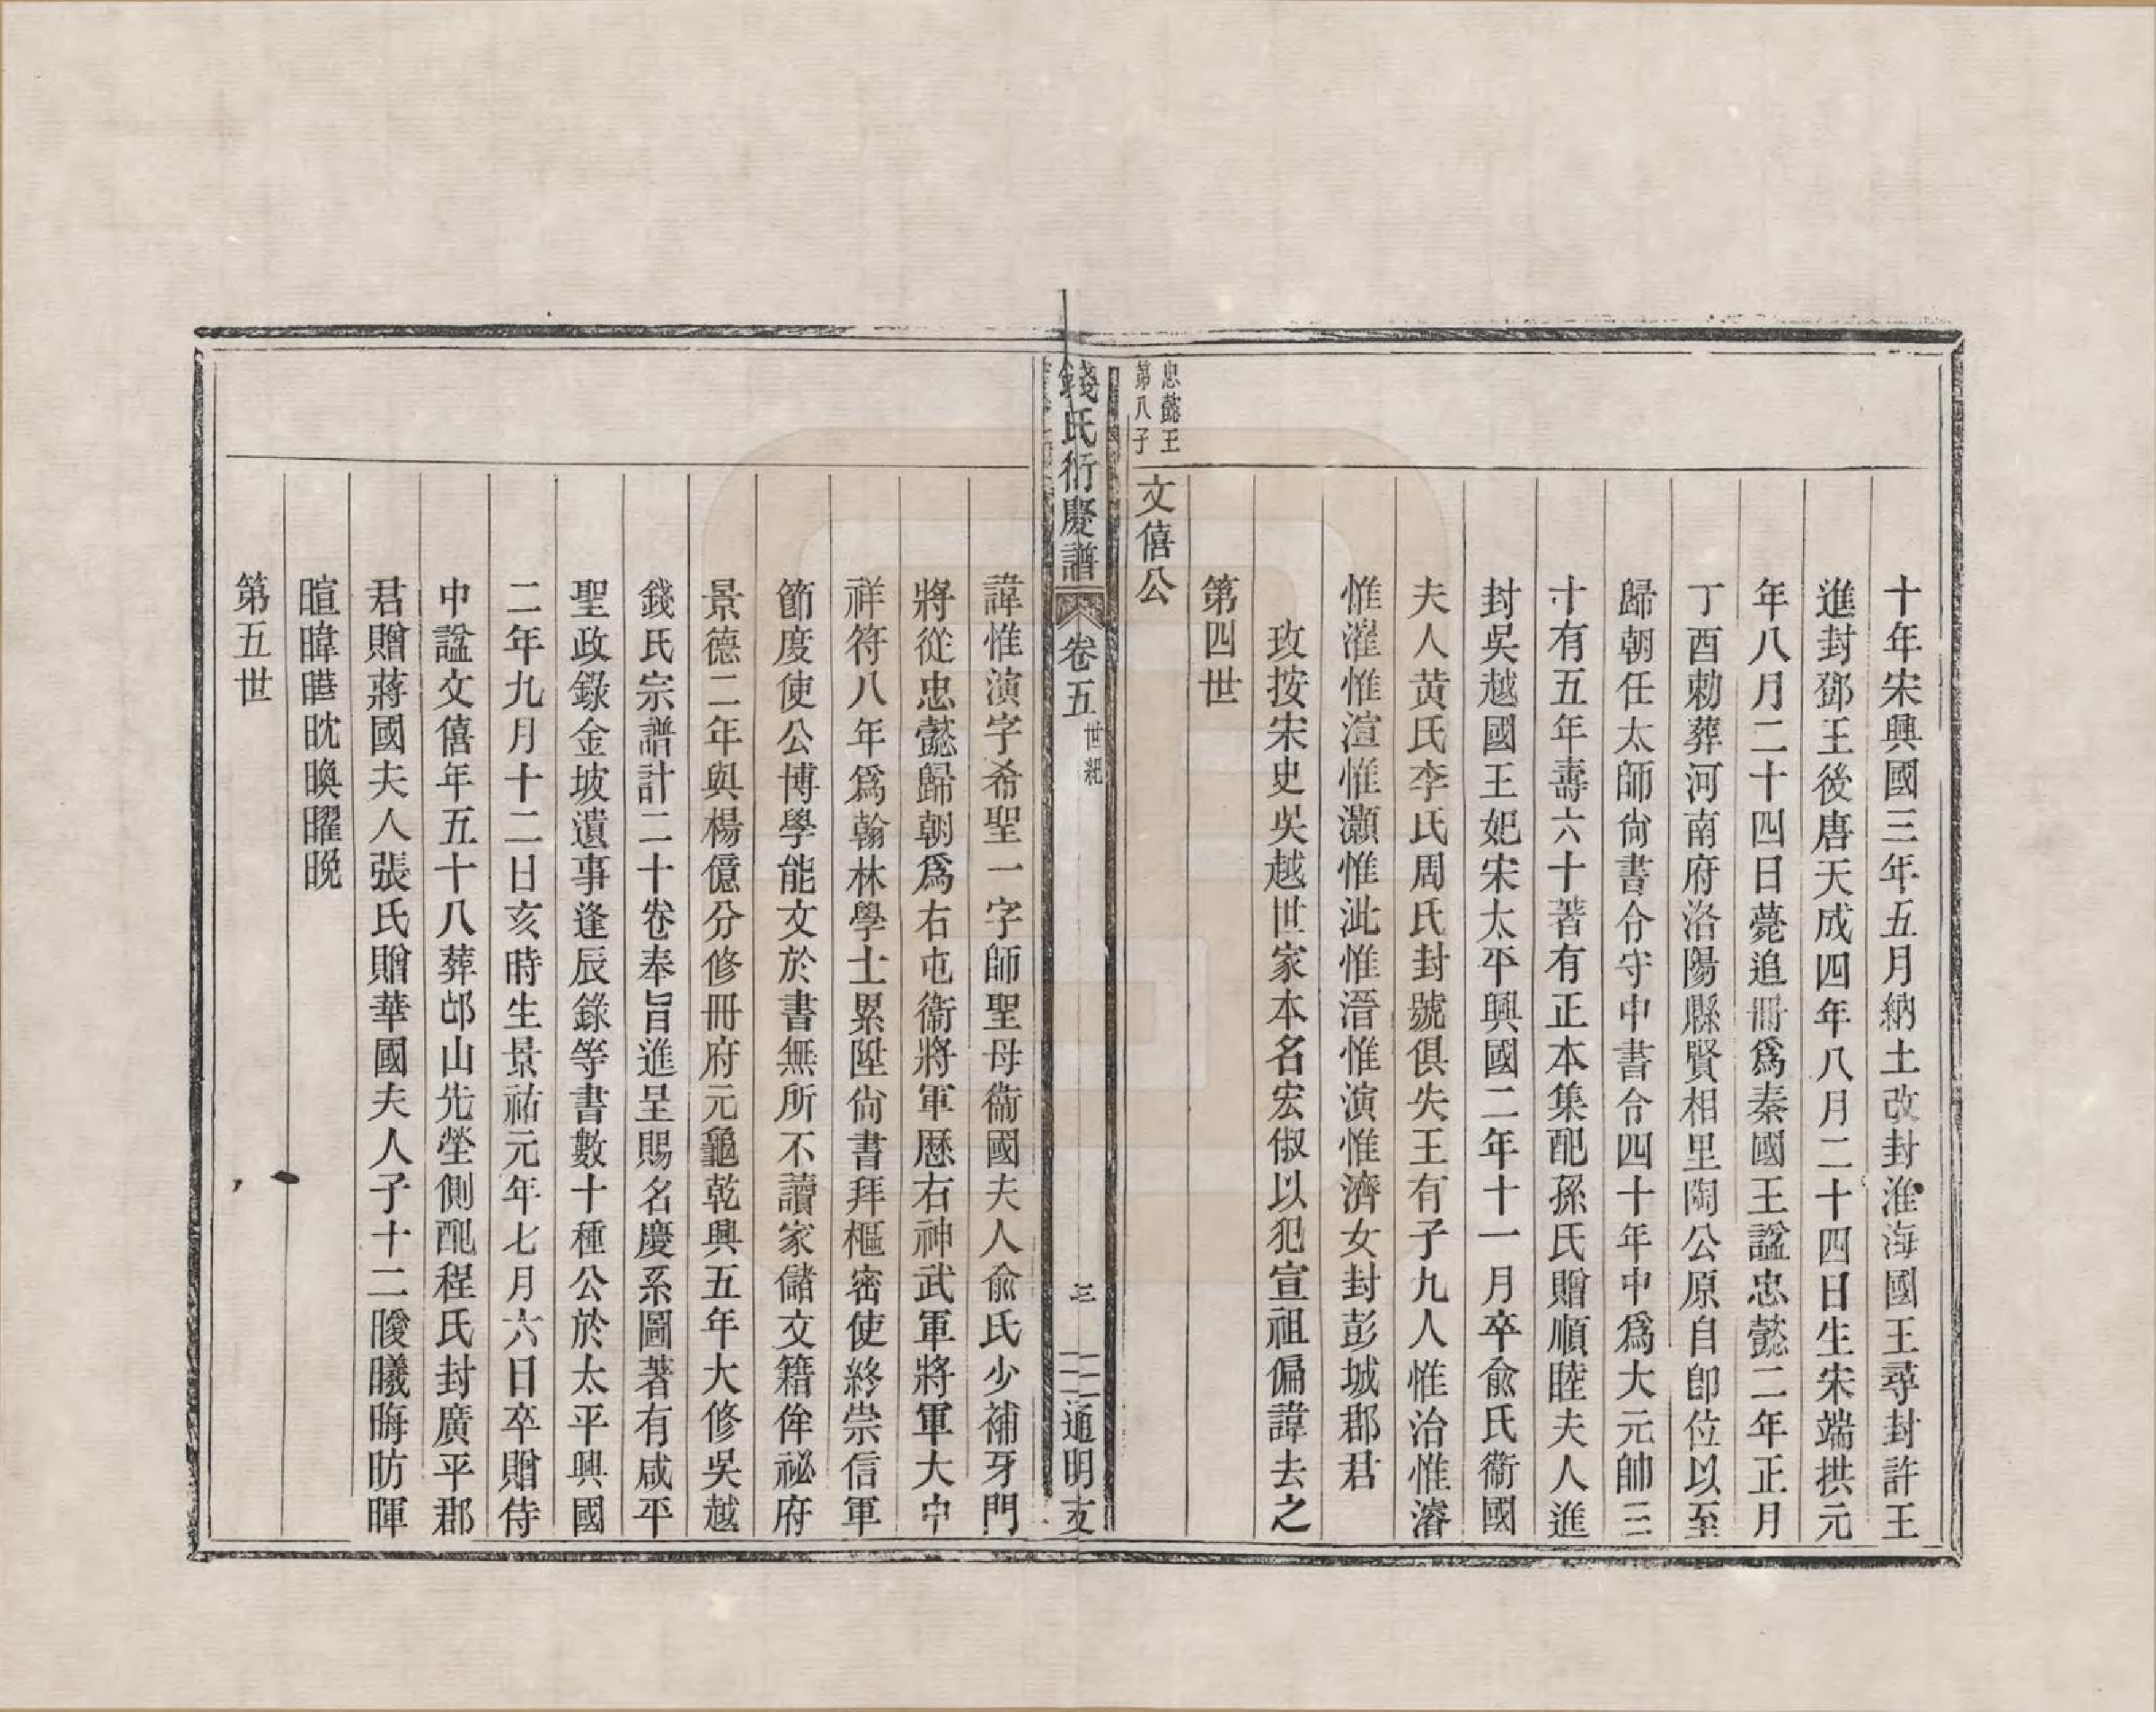 十年宋興國三年五月納土改封淮海國王尋封許王
進封鄧王後唐天成四年八月二十四日生宋端拱元
年八月二十四日薨追冊爲秦國王諡忠懿二年正月
丁酉勅葬河南府洛陽縣賢相里陶公原自卽位以至
歸朝任太師尙書令守中書令四十年中爲大元帥三
十有五年壽六十著有正本集配孫氏贈順睦夫人進
封吳越國王妃宋太平興國二年十一月卒俞氏衞國
夫人黃氏李氏周氏封號俱失王有子九人惟治惟濬
惟渲惟灝惟泚惟溍惟演惟濟女封彭城郡君
攷按宋史吳越世家本名宏俶以犯宣祖偏諱去之
第四世
忠懿王
第八子
文僖公
錢氏衍慶譜
卷五
世紀
三
通明支
諱惟演字希聖一字師聖母衞國夫人俞氏少補牙門
將從忠懿歸朝爲右屯衞將軍歷右神武軍將軍大中
祥符八年爲翰林學士累陞尙書拜樞密使終崇信軍
節度使公博學能文於書無所不讀家儲文籍侔祕府
景德二年與楊億分修冊府元龜乾興五年大修吳越
錢氏宗譜計二十卷奉旨進呈賜名慶系圖著有咸平
聖政錄金坡遺事逢辰錄等書數十種公於太平興國
二年九月十二日亥時生景祐元年七月六日卒贈侍
中諡文僖年五十八葬邙山先塋側配程氏封廣平郡
君贈蔣國夫人張氏贈華國夫人子十二曖曦晦昉暉
暄暐曄晩暎曜晚
第五世